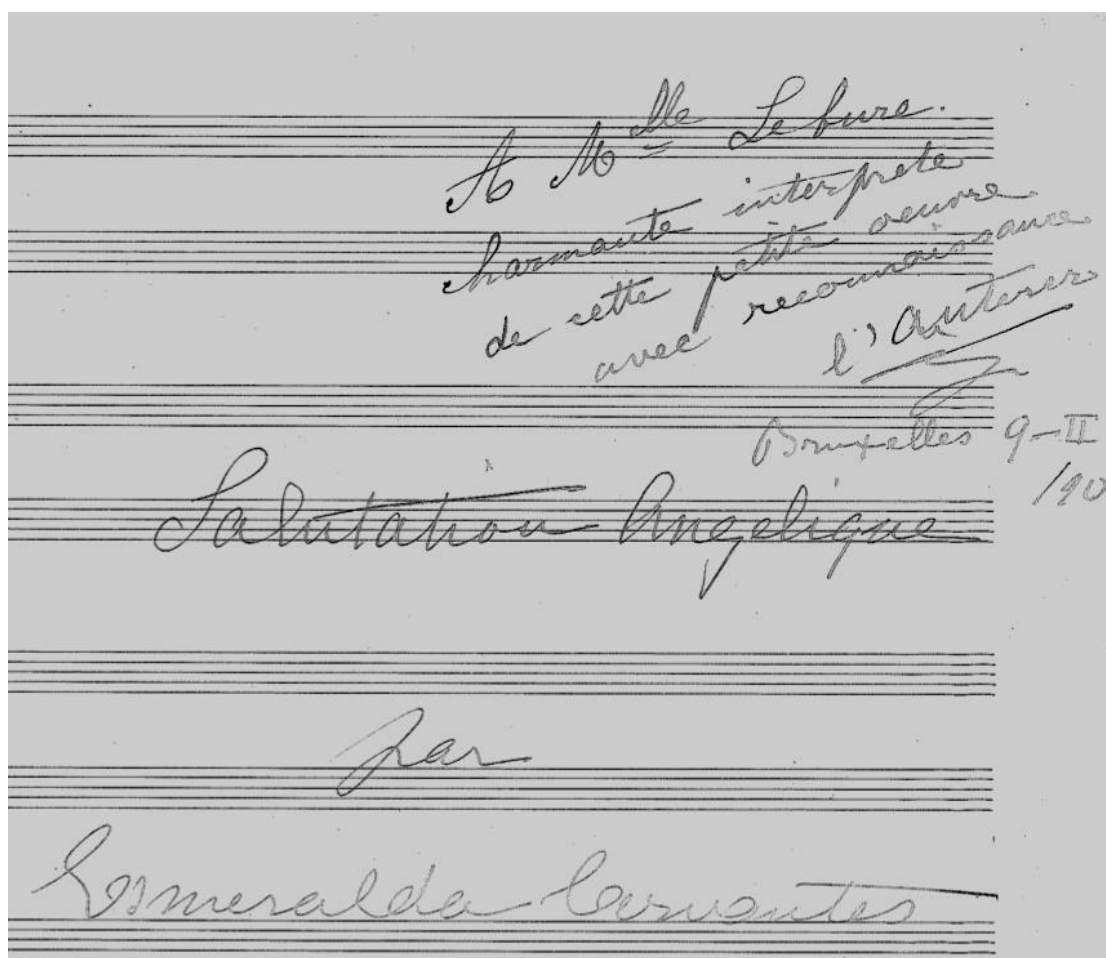 A Mlle Lebure.
charmante interprete
de cette petite oeuvre
avec reconnaissance
l'auteur
Bruxelles 9-II
/90
Salutation Angelique
par
Esmeralda Cervantes